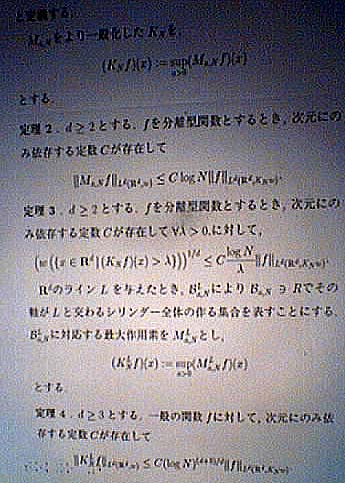 と定義する.
M_{a,N}をより一般化した K_Nを,
(K_N f)(x) := sup_{a>0}(M_{a,N}f)(x)
とする.
定理 2. d ≥ 2とする. fを分離型関数とするとき, 次元にの
み依存する定数 Cが存在して
‖M_{a,N}f‖_{L^d(R^d,w)} ≤ C log N‖f‖_{L^d(R^d,K_N w)}.
定理 3. d ≥ 2とする. fを分離型関数とするとき, 次元にの
み依存する定数 Cが存在して ∀λ > 0,に対して,
(w({x ∈ R^d | (K_N f)(x) > λ}))^{1/d} ≤ C \frac{log N}{λ}‖f‖_{L^d(R^d,K_N w)}.
R^dのライン Lを与えたとき, B^L_{a,N}により B_{a,N} ∋ Rでその
軸が Lと交わるシリンダー全体の作る集合を表すことにする.
B^L_{a,N}に対応する最大作用素を M^L_{a,N}とし,
(K^L_N f)(x) := sup_{a>0}(M^L_{a,N}f)(x)
とする.
定理 4. d ≥ 3とする. 一般の関数 fに対して, 次元にのみ依
存する定数 Cが存在して
‖K^L_N f‖_{L^d(R^d,w)} ≤ C(log N)‖f‖_{L^d(R^d,K_N w)}